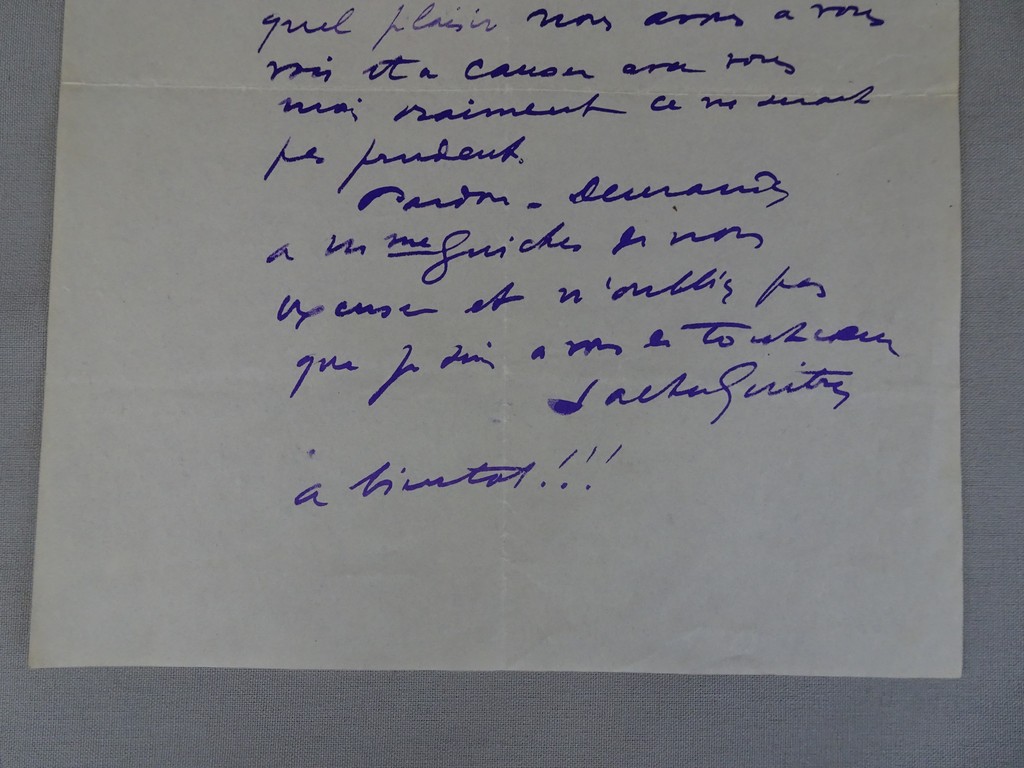 quel plaisir nous avons a vous
voir et a causer avec vous
mais vraiment ce ne serait
pas prudent.
Pardon - Demandez
a Mme Guiches de nous
excuser et n'oubliez pas
que je suis a vous de tout cœur
Sacha Guitry
a bientot!!!